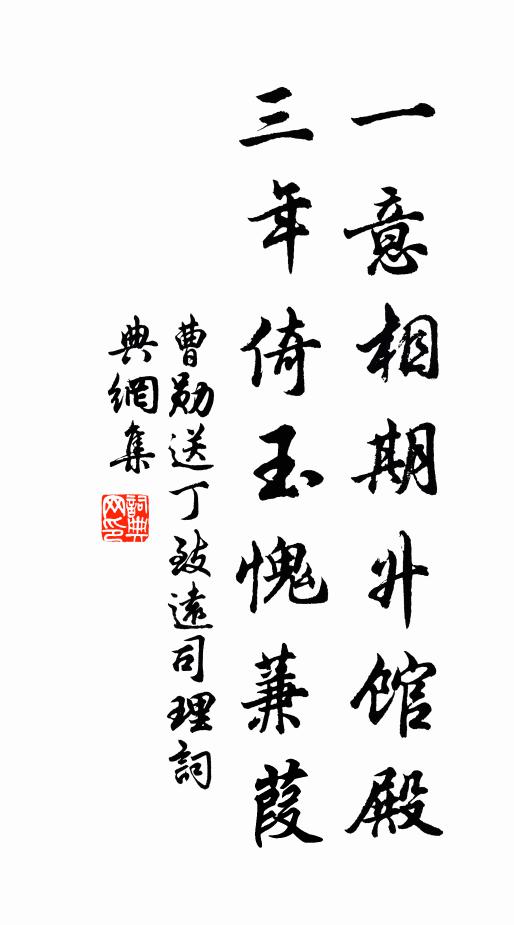 一意相期升館殿
三年倚玉愧蒹葭
曹勛送丁致遠司理詞
典網集
詞典网印